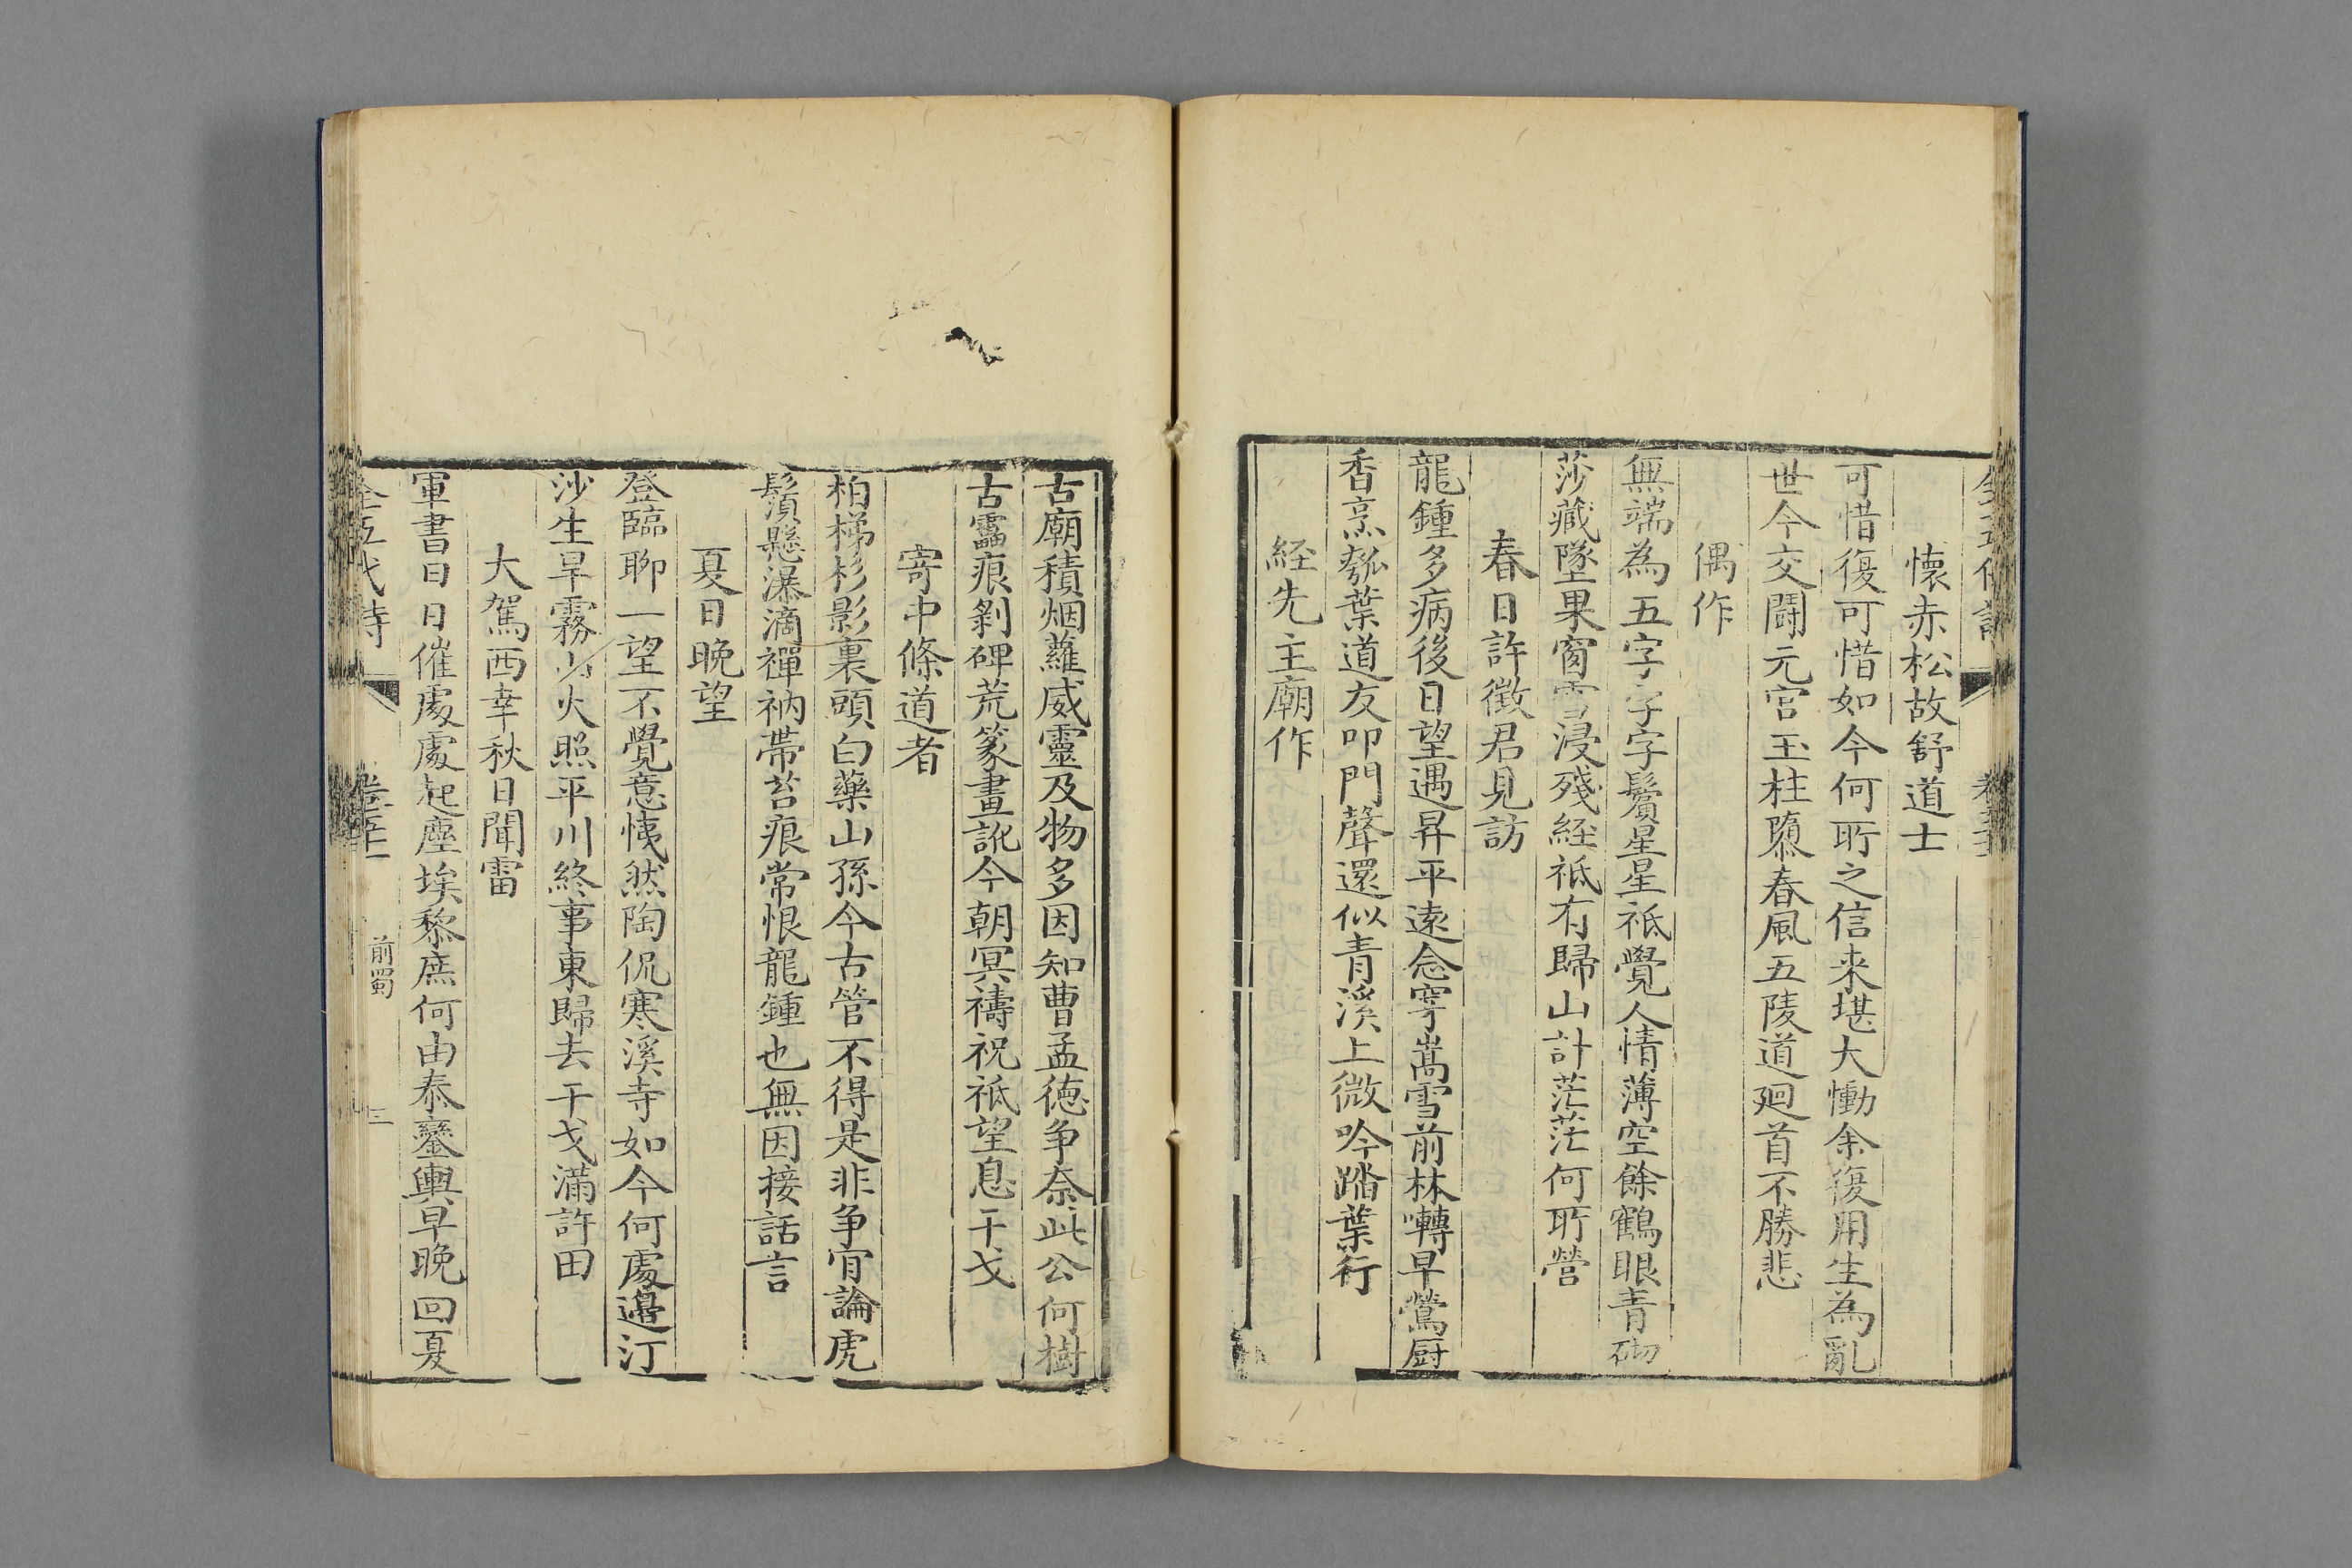 懷赤松故舒道士
可惜復可惜如今何所之信来堪大慟余復用生為亂
世今交鬪元宮玉柱隳春風五陵道廻首不勝悲
偶作
無端為五字字字鬢星星祇覺人情薄空餘鶴眼青砌
莎藏墜果窗雪浸殘経祇有歸山計茫茫何所營
春日許徵君見訪
龍鍾多病後日望遇昇平遠念穿嵩雪前林囀早鶯厨
香烹瓠葉道友叩門聲還似青溪上微吟踏葉行
経先主廟作
古廟積烟蘿威靈及物多因知曹孟徳争奈此公何樹
古靁痕剝碑荒篆畫訛今朝冥禱祝祇望息干戈
寄中條道者
柏梯杉影裏頭白藥山孫今古管不得是非争肎論虎
鬚懸瀑滴禪衲帶苔痕常恨龍鍾也無因接話言
夏日晚望
登臨聊一望不覺意悽然陶侃寒溪寺如今何處邊汀
沙生旱霧山火照平川終事東歸去干戈滿許田
大駕西幸秋日聞雷
軍書日日催處處起塵埃黎庶何由泰鑾輿早晚回夏
全五代詩
前蜀
三